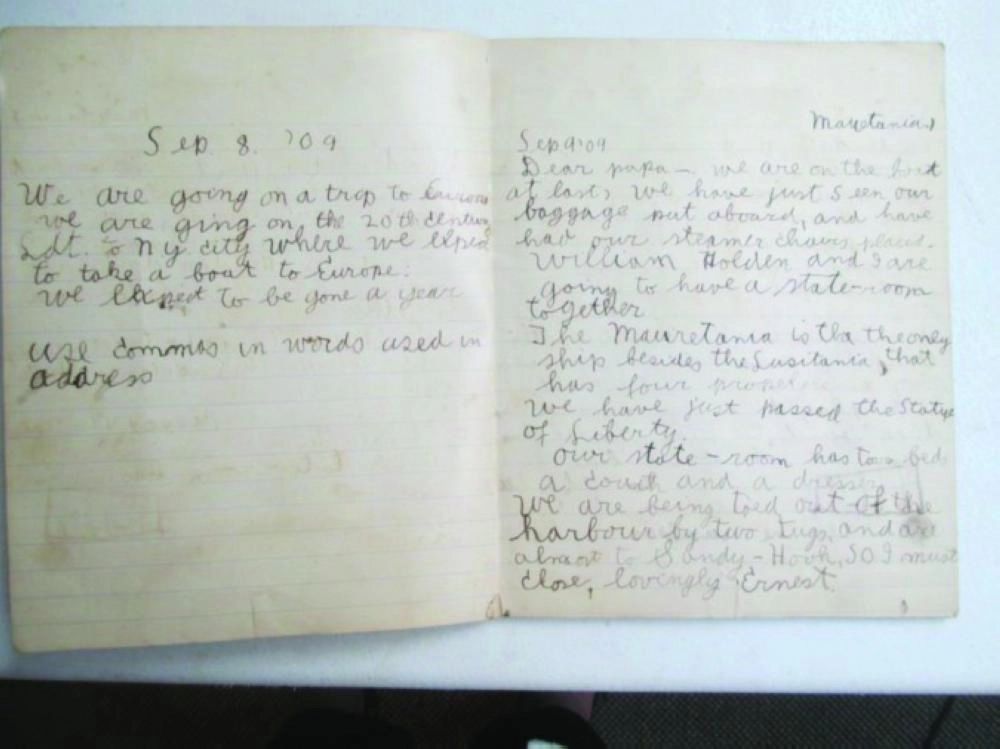 Sep. 8. '09
We are going on a trop to Europe
we are ging on the 20th Century
Ldt. to N y city where we expect
to take a boat to Europe.
we expect to be gone a year
use commas in words used in
address
Mauretania,
Sep 9 '09
Dear papa—. we are on the boat
at last, we have just seen our
baggage put aboard, and have
had our steamer chairs placed.
William Holden and I are
going to have a state-room
together
The Mauretania is the only
ship besides the Lusitania, that
has four
We have just passed the Statue
of Liberty.
our state-room has two bed
a couch and a dresser
We are being toed out of the
harbour by two tugs, and are
almost to Sandy-Hook, so I must
close, lovingly Ernest.